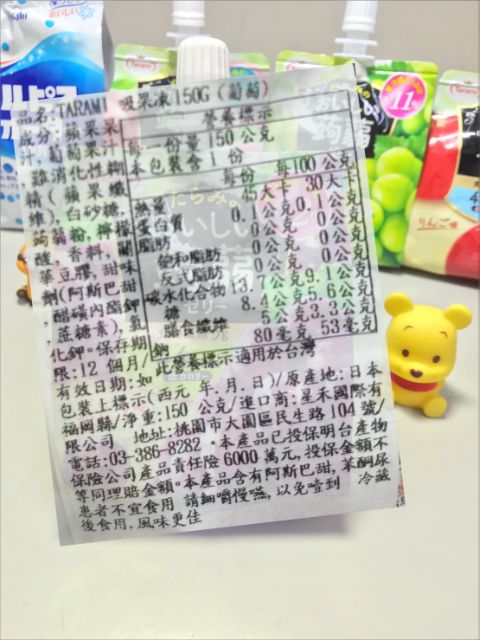 品名:TARAMI 吸果凍150G (葡萄)
成分:蘋果果汁、葡萄果汁、難消化性糊精(蘋果纖維)、白砂糖、蒟蒻粉、檸檬酸、香料、關華豆膠、甜味劑(阿斯巴甜、醋磺內酯鉀、蔗糖素)、氯化鉀。保存期限:12 個月/
營養標示
每一份量 150 公克
本包裝含 1 份
每份 每100公克
熱量 45大卡 30大卡
蛋白質 0.1公克 0.1公克
脂肪 0公克 0公克
飽和脂肪 0公克 0公克
反式脂肪 0公克 0公克
碳水化合物 13.7公克 9.1公克
糖 8.4公克 5.6公克
膳食纖維 5公克 3.3公克
鈉 80毫克 53毫克
此營養標示適用於台灣
有效日期:如
包裝上標示(西元 年.月.日)/原產地:日本
福岡縣/淨重:150 公克/進口商:星禾國際有
限公司 地址:桃園市大園區民生路104號/
電話:03-386-8282 ·本產品已投保明台產物
保險公司產品責任險 6000 萬元,投保金額不
等同理賠金額。本產品含有阿斯巴甜,苯酮尿
患者不宜食用 請細嚼慢嚥,以免噎到 冷藏
後食用,風味更佳
Tarami
11
りんご味